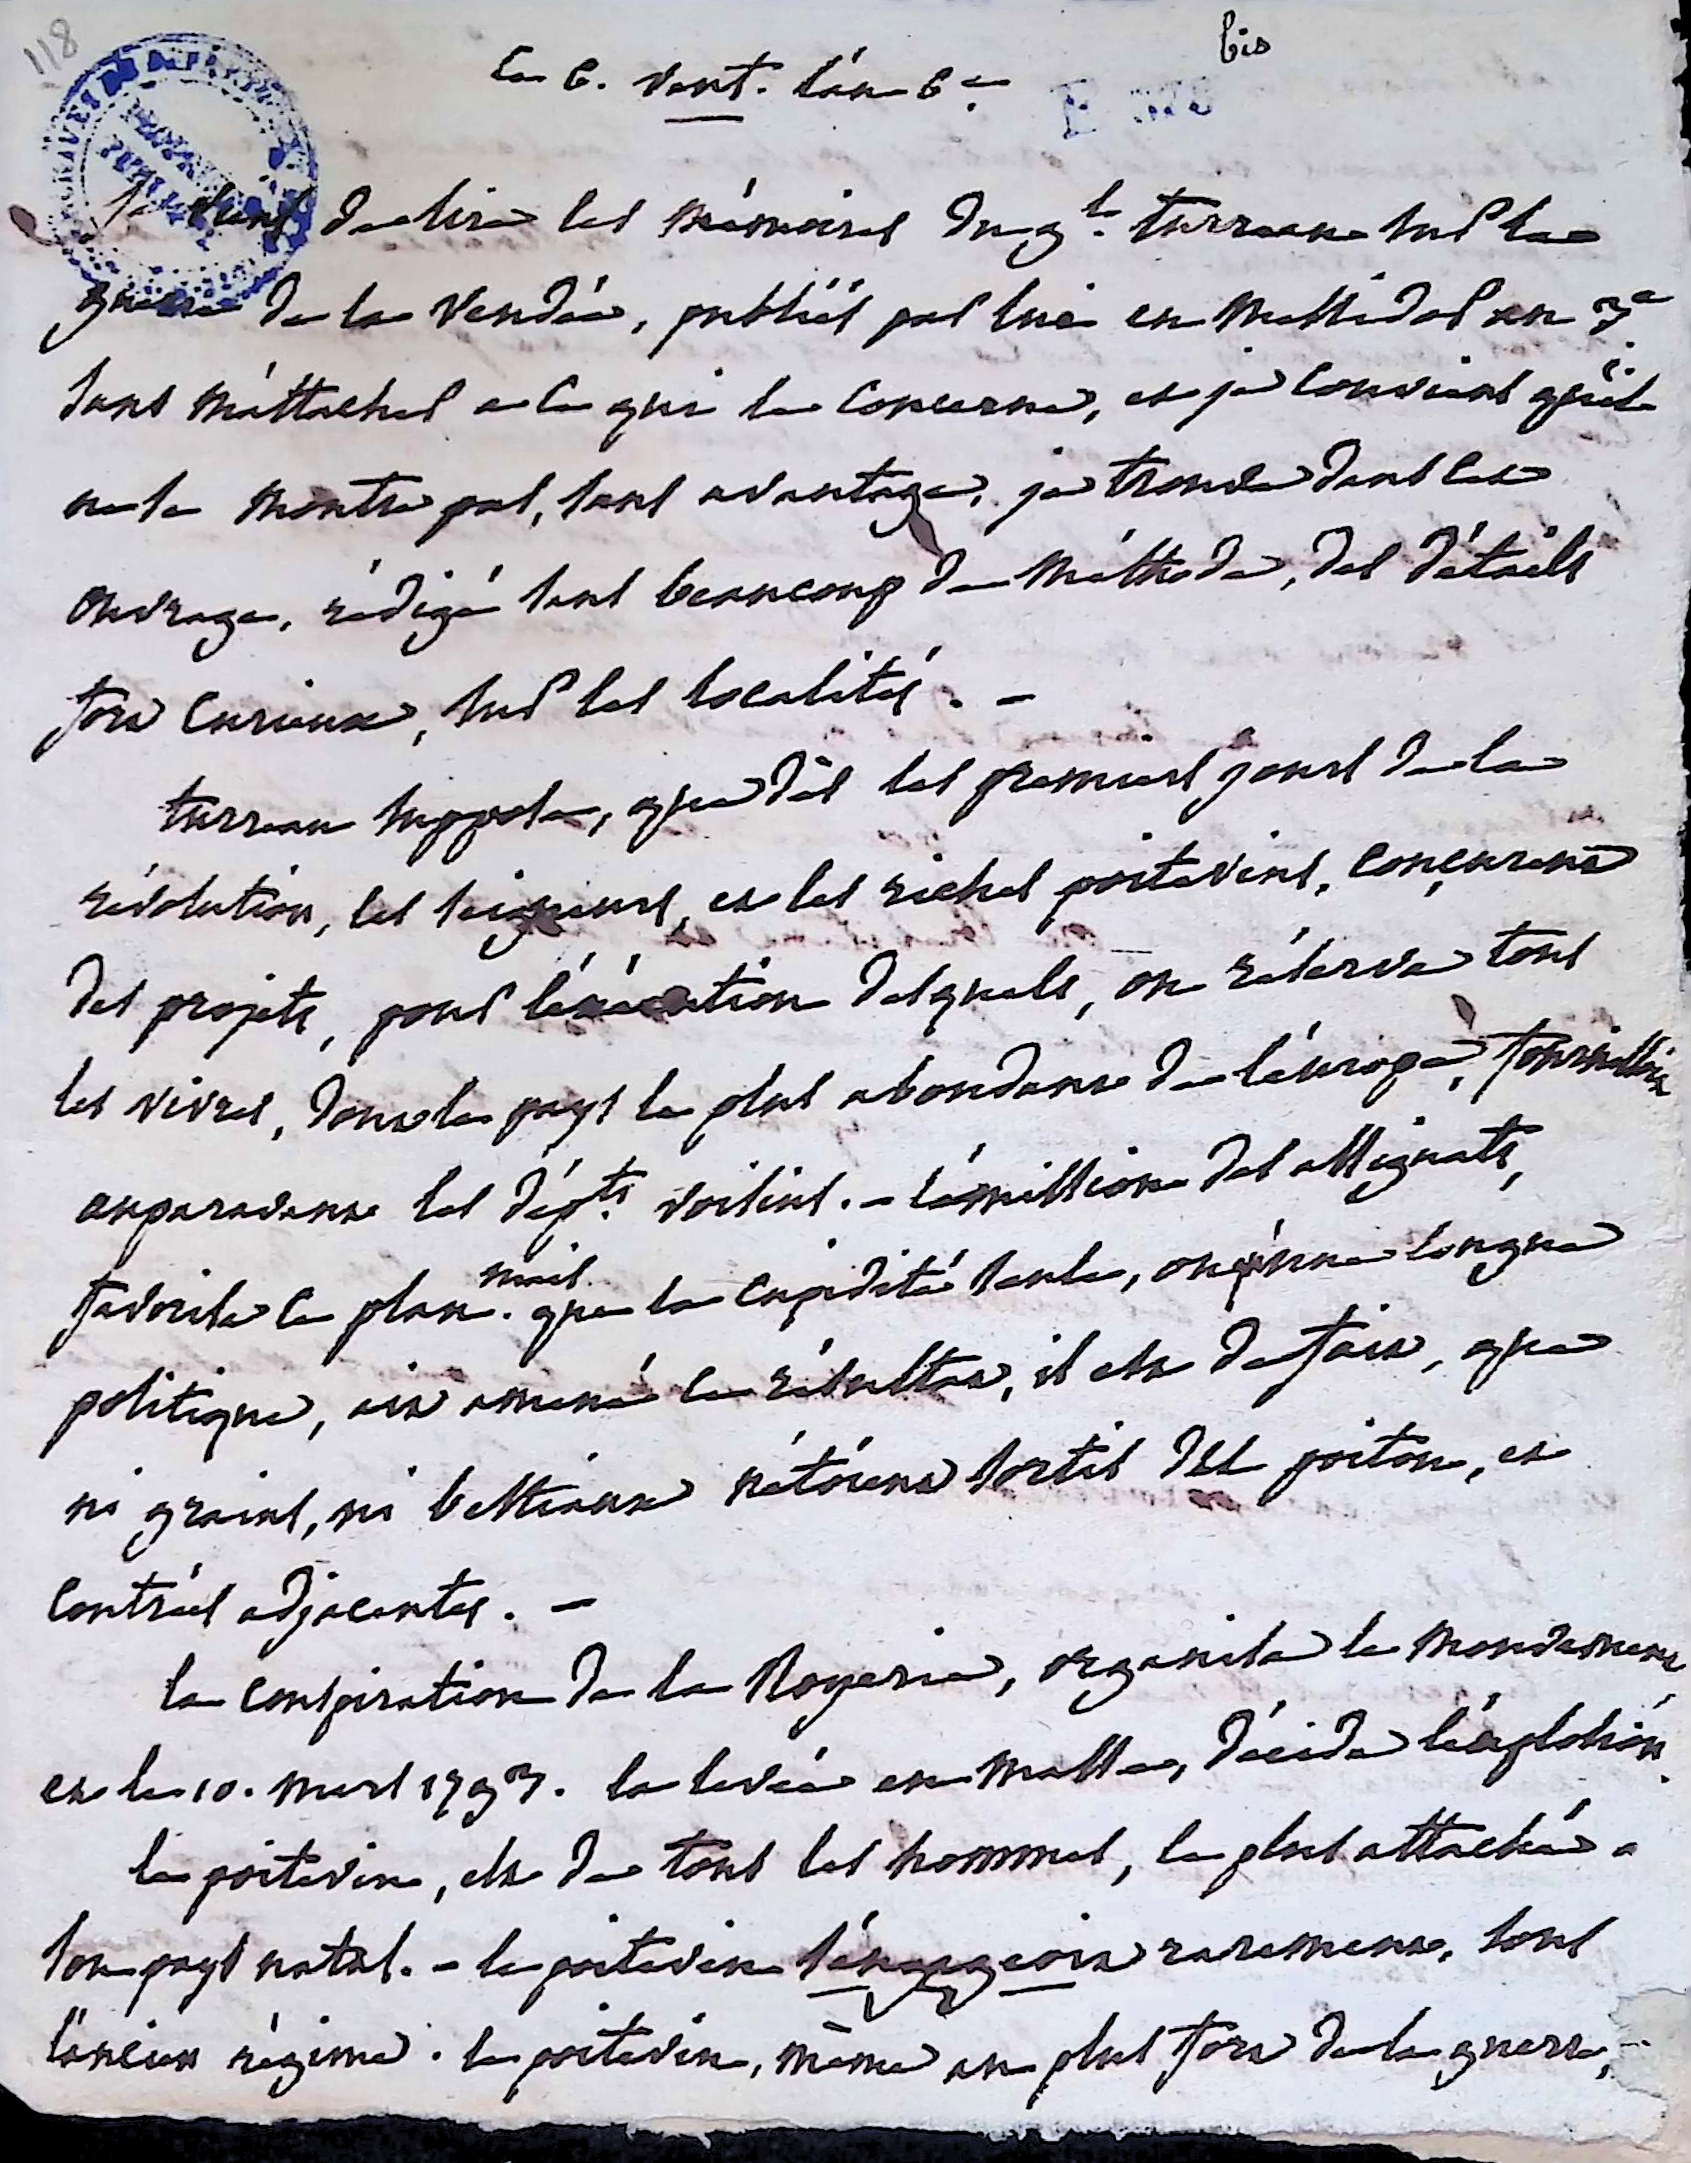 118
bis
Ce 6. vent. l'an 6e.
je viens de lire les mémoires du gl. turreau sur la
guerre de la Vendée, publiés par lui en Messidor an 3e
sans m'attacher a ce qui le concerne, et je conviens qu'il
ne se montre pas, sans avantage, je trouve dans cet
ouvrage, rédigé sans beaucoup de méthode, des détails
fort curieux, sur les localités. -
turreau suppose, que dès les premiers jours de la
révolution, les seigneurs, et les riches poitevins, conçurent
des projets, pour l'éxécution desquels, on réserva tous
les vivres, dont le pays le plus abondant de l'europe,
auparavant les dépts. voisins. - l'émission des assignats,
favorisa ce plan. mais que la cupidité seule, ou qu'une longue
politique, ait amené ce résultat, il est de fait, que
ni grains, ni bestiaux n'étoient sortis du poitou, et
contrées adjacentes. -
la conspiration de la Royerie, organisa le mouvement,
et le 10. mars 1793. la levée en masse, décida l'éxplosion.
le poitevin, est de tous les hommes, le plus attaché a
son pays natal. - le poitevin s'engageoit rarement, sous
l'ancien régime. le poitevin, même au plus fort de la guerre,